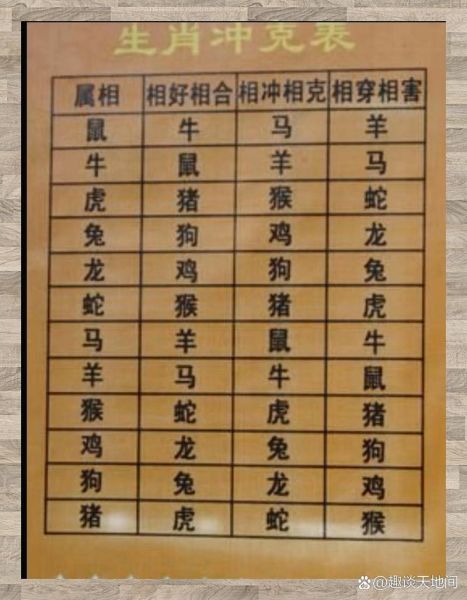 生肖冲克表
属相 相好相合 相冲相克 相穿相害
鼠 牛 马 羊
牛 鼠 羊 马
虎 猪 猴 蛇
兔 狗 鸡 龙
龙 鸡 狗 兔
蛇 猴 猪 虎
马 羊 鼠 牛
羊 马 牛 鼠
猴 蛇 虎 猪
鸡 龙 兔 狗
狗 兔 龙 鸡
猪 虎 蛇 猴
@趣谈天地间